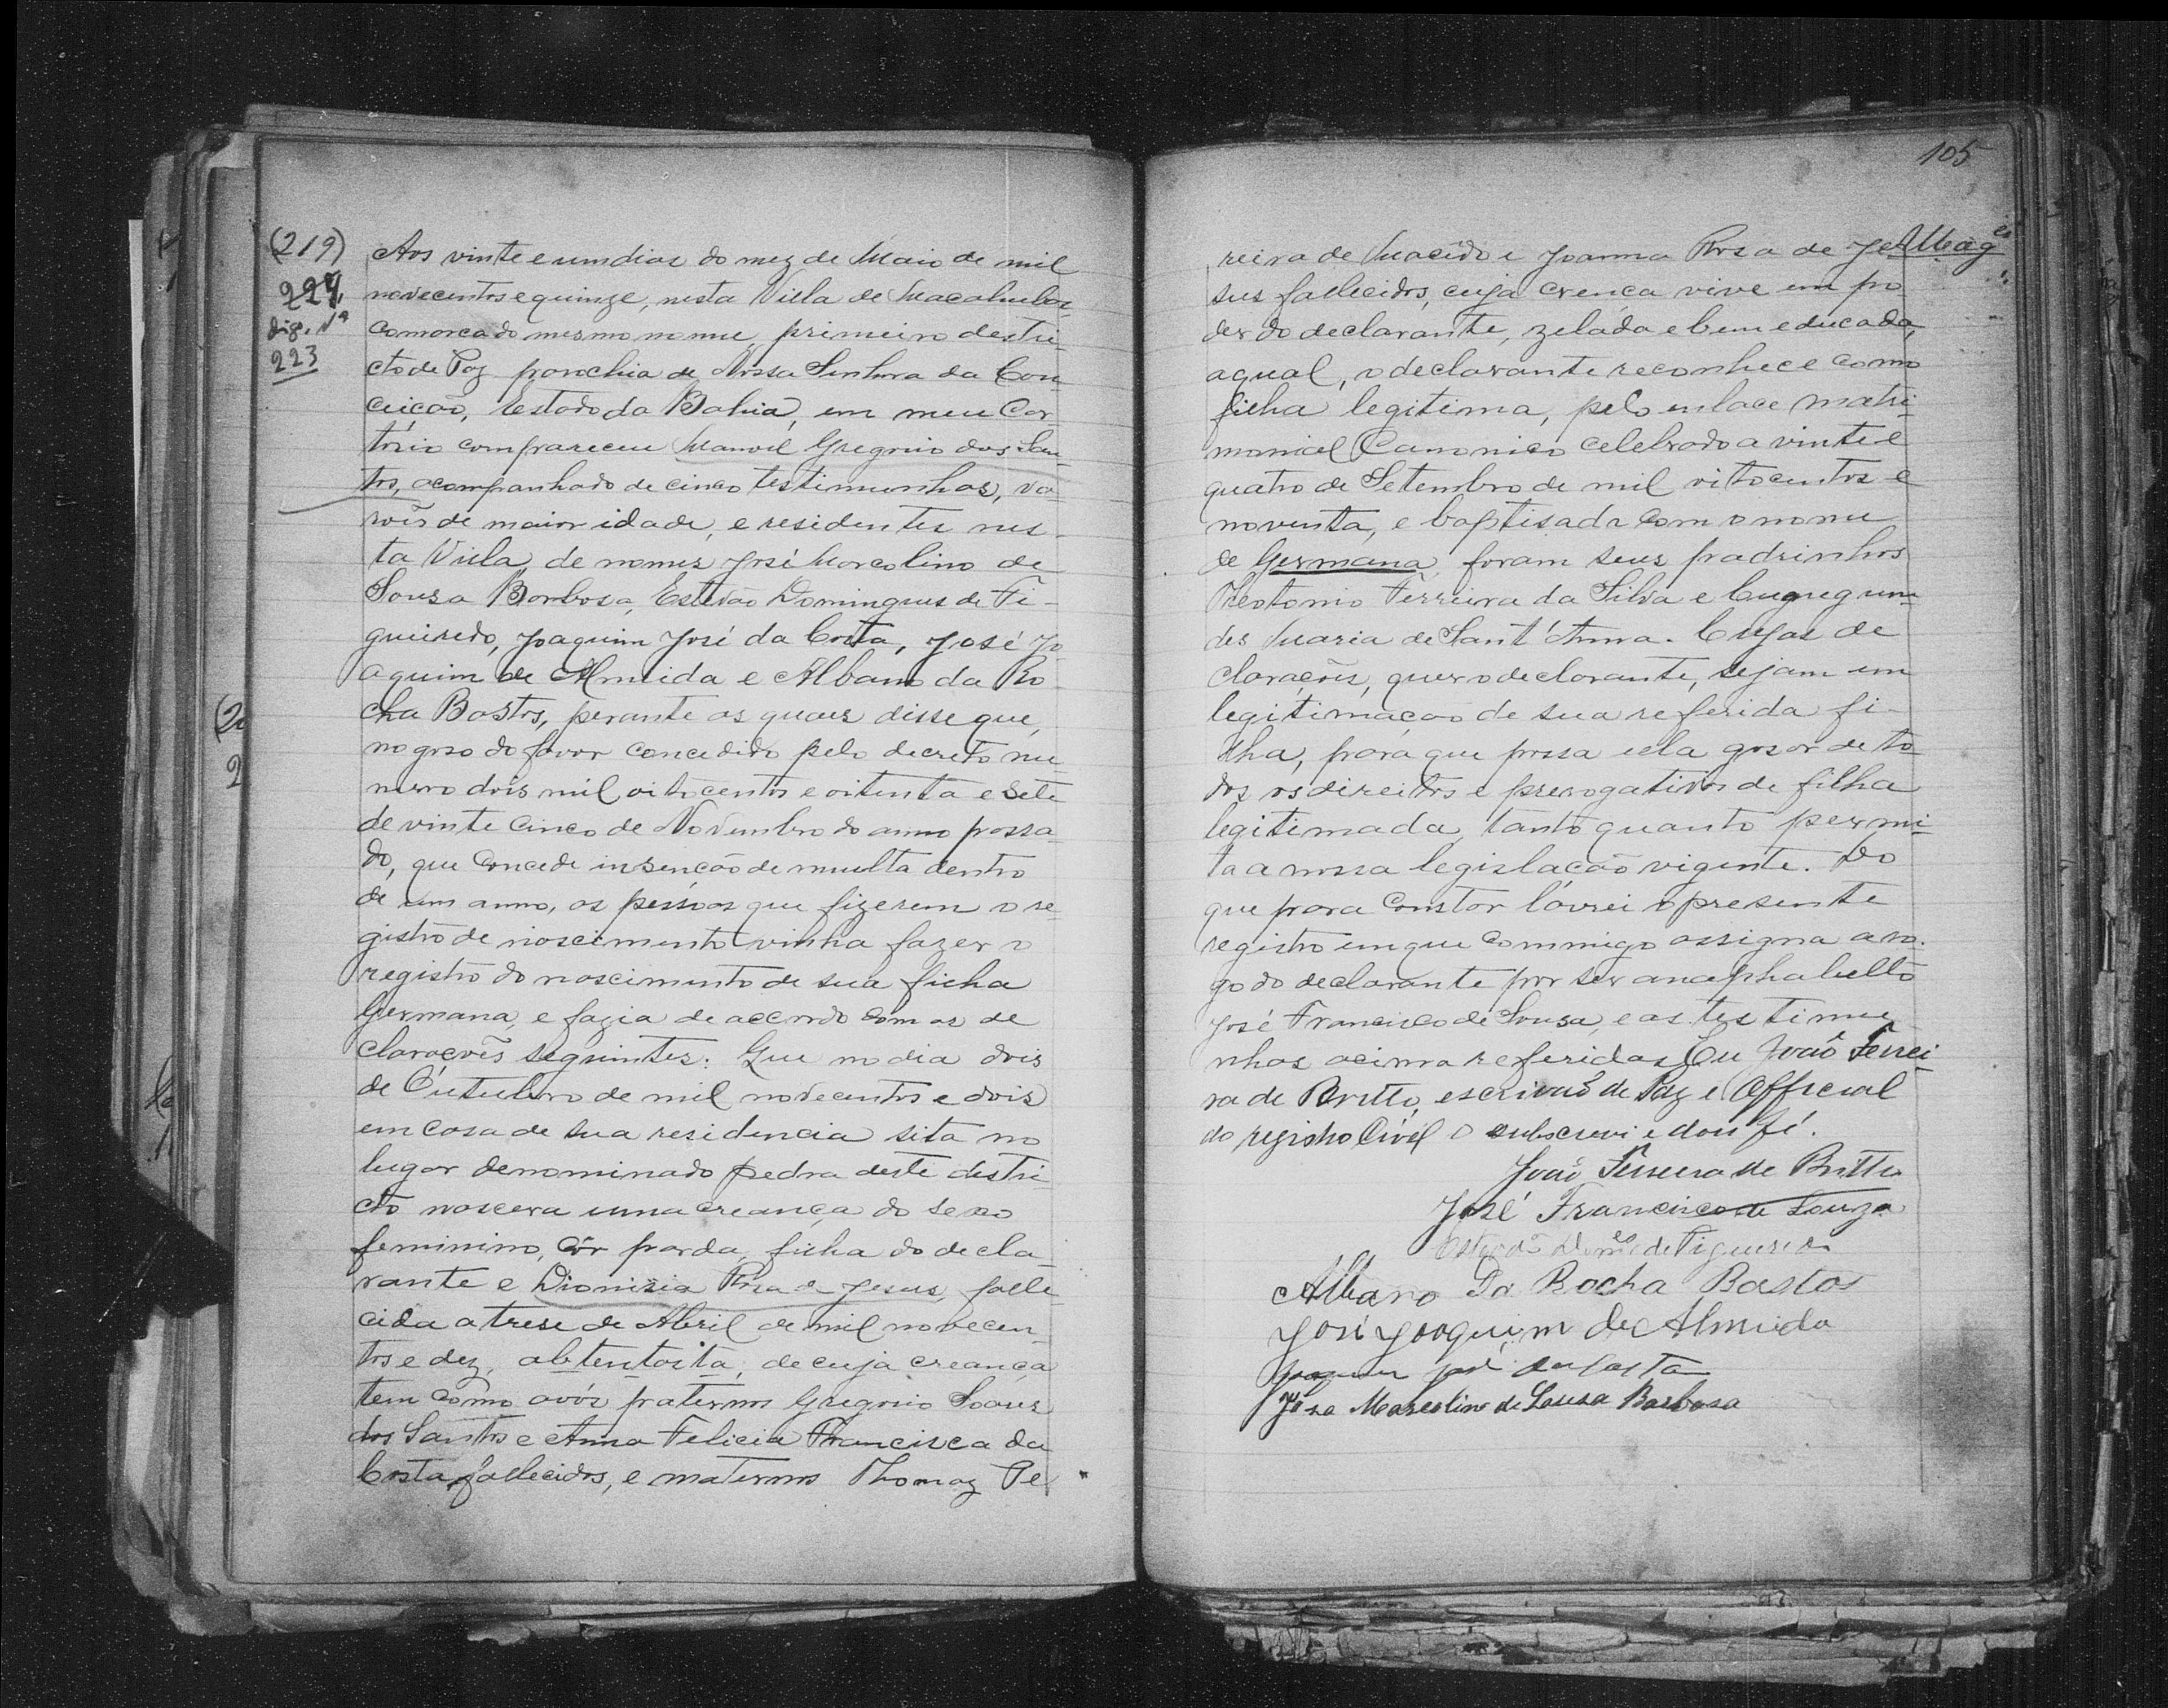 105
(219)
227,
dig. Nº
223
Aos vinte e um dias do mez de Maio de mil
novecentos e quinze, nesta Villa de Macahubas
comarca do mesmo nome, primeiro destri-
cto de Paz parochia de Nossa Senhora da Con-
ceição, Estado da Bahia, em meu Car-
torio compareceu Manoel Gregorio dos San-
tos, acompanhado de cinco testimunhas, va-
rois de maior idade, e residentes nes-
ta Villa, de nomes José Marcolino de
Sousa Barbosa, Estevão Domingues de Fi-
gueiredo, Joaquim José da Costa, José Jo-
aquim de Almeida e Albano da Ro-
cha Bastos, perante as quaes disse que,
no goso do favor concedido pelo decreto nu-
mero dois mil oitocentos e oitenta e sete
de vinte cinco de Novembro do anno passa-
do, que concede insenção de multa dentro
de um anno, as pessôas que fizerem o re-
gistro de nascimento vinha fazer o
registro do nascimento de sua filha
Germana, e fazia de accordo com as de-
claraçoês seguintes: Que no dia dois
de Outubro de mil novecentos e dois
em casa de sua residencia sita no
lugar denominado pedra deste destri-
cto nascera uma creança do sexo
feminino, côr parda, filha do decla-
rante e Dionizia Rosa de Jesus, falle-
cida a trese de Abril de mil novecen-
tos e dez, abtentosta, de cuja creança
tem como avós paternos Gregorio Soares
dos Santos e Anna Felicia Francisca da
Costa, fallecidos, e maternos Thomaz Pe-
reira de Macêdo e Joanna Rosa de Je-
sus fallecidos, cuja crença vive em po-
der do declarante, zelada e bem educada,
a qual, o declarante reconhece como
filha legitima, pelo enlace matri-
monial Canonico celebrado a vinte e
quatro de Setembro de mil oitocentos e
noventa, e baptisada com o nome
de Germana, foram seus padrinhos
Theotonio Ferreira da Silva e Cugnegun-
des Maria de Sant'Anna. Cujas de-
clarações, quer o declarante, sejam em
legitimação de sua referida fi-
lha, para que possa ella gosar de to-
dos os direitos e prerogativas de filha
legitimada, tanto quanto permi-
ta a nossa legislação vigente. Do
que para constar lavrei o presente
registro em que commigo assigna a ro-
go do declarante por ser anaphabelto
José Francisco de Sousa, e as testimu-
nhas acima referidas. Eu João Ferrei-
ra de Britto, escrivaõ de Paz e Official
do registro Civil o subscrevi e dou fé.
João Ferreira de Britto
José Francisco de Souza
Estevão Dom.es de Figueiredo
Albano Da Rocha Bastos
José Joaquim de Almeida
Joaquim José da Costa
José Marcolino de Sousa Barbosa